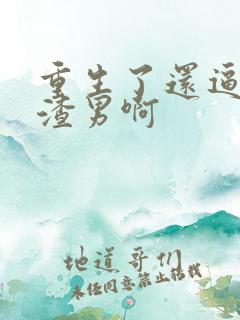 重生了還逼
渣男啊
地道哥们
未经同意禁止转载